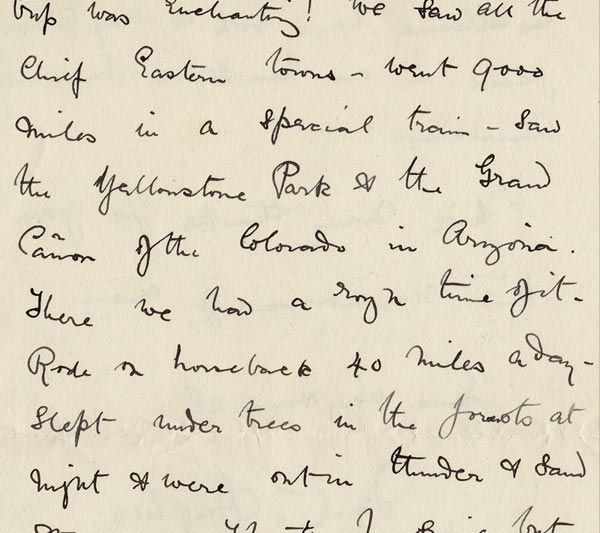 trip was Enchanting! We saw all the
Chief Eastern towns – went 9000
miles in a special train – saw
the Yellowstone Park & the Grand
Cañon of the Colorado in Arizona.
There we had a rough time of it –
Rode on horseback 40 miles a day –
Slept under trees in the forests at
night & were out in thunder & sand